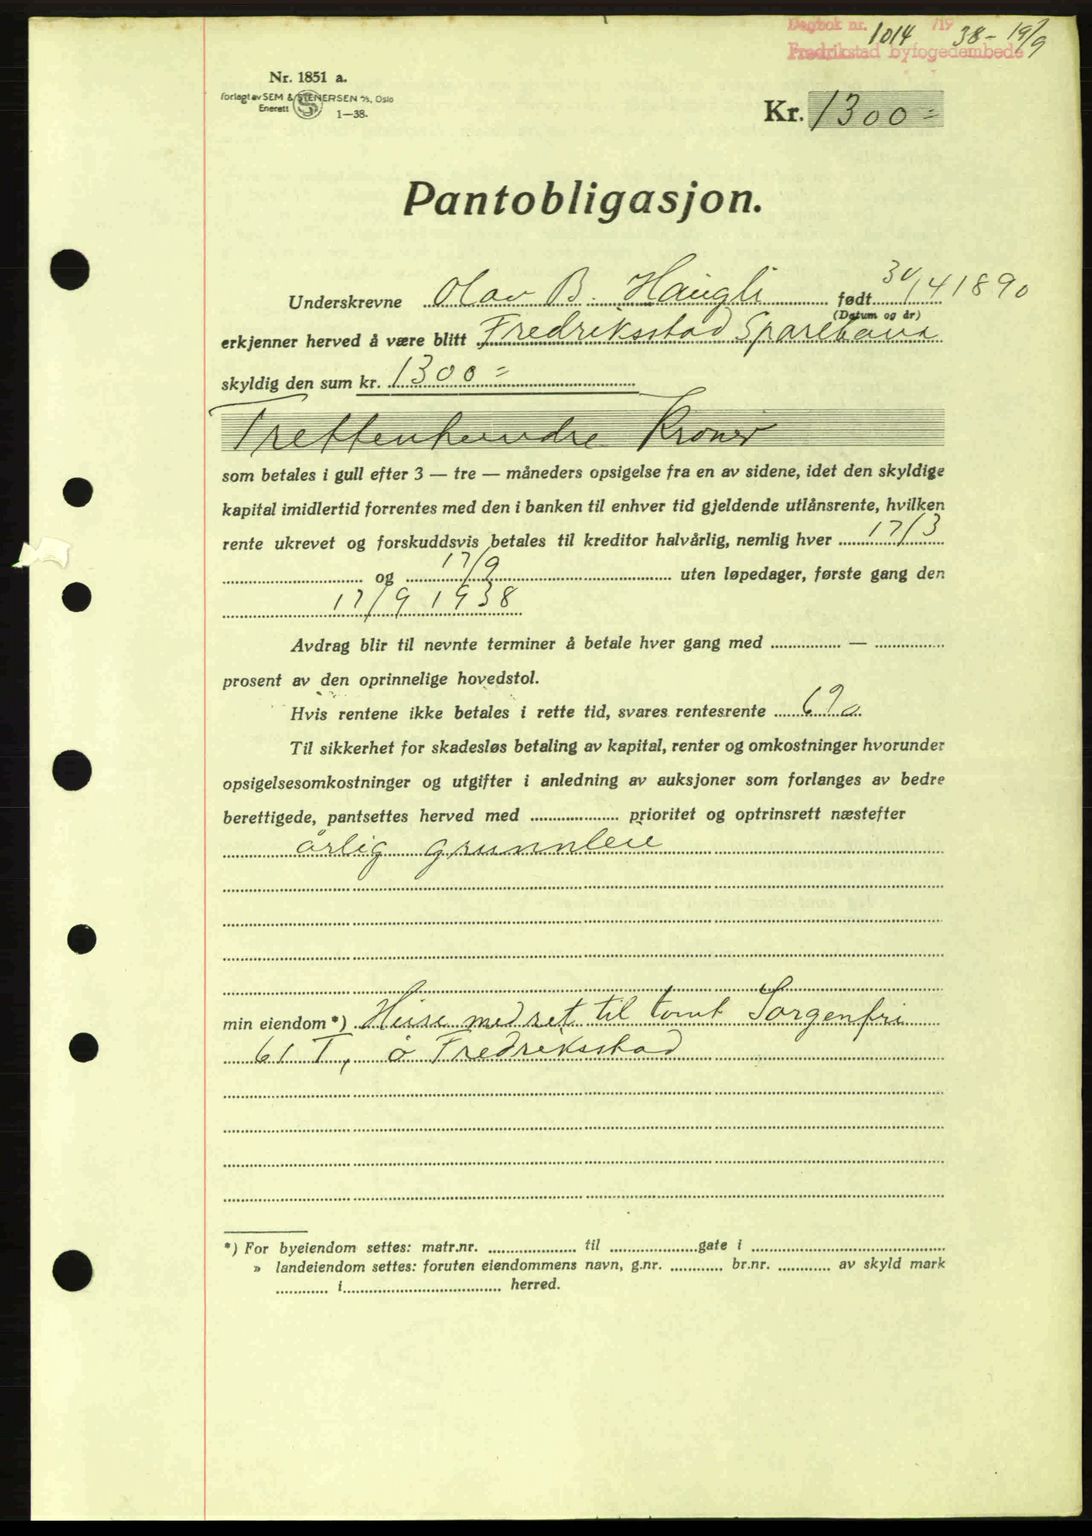 Dagbok nr. 1014 /19 38 - 19/9
Fredrikstad byfogedembede
Nr. 1851 a.
Forlagt av SEM & STENERSEN A/S, Oslo
Enerett
1—38.
Kr. 1300 =
Pantobligasjon.
Underskrevne Olav B. Haugli født 30/4 1890
(Datum og år)
erkjenner herved å være blitt Fredriksstad Sparebank
skyldig den sum kr. 1300 =
Trettenhundre Kroner
som betales i gull efter 3 — tre — måneders opsigelse fra en av sidene, idet den skyldige
kapital imidlertid forrentes med den i banken til enhver tid gjeldende utlånsrente, hvilken
rente ukrevet og forskuddsvis betales til kreditor halvårlig, nemlig hver 17/3
og 17/9 uten løpedager, første gang den
17/9 1938
Avdrag blir til nevnte terminer å betale hver gang med — 
prosent av den oprinnelige hovedstol.
Hvis rentene ikke betales i rette tid, svares rentesrente 6%
Til sikkerhet for skadesløs betaling av kapital, renter og omkostninger hvorunder
opsigelsesomkostninger og utgifter i anledning av auksjoner som forlanges av bedre
berettigede, pantsettes herved med prioritet og optrinsrett næstefter
årlig grunnleie
min eiendom *) Huse med ret til tomt Sorgenfri
61 I, ö Fredriksstad
*) For byeiendom settes: matr.nr. til gate i
» landeiendom settes: foruten eiendommens navn, g.nr. br.nr. av skyld mark
i herred.